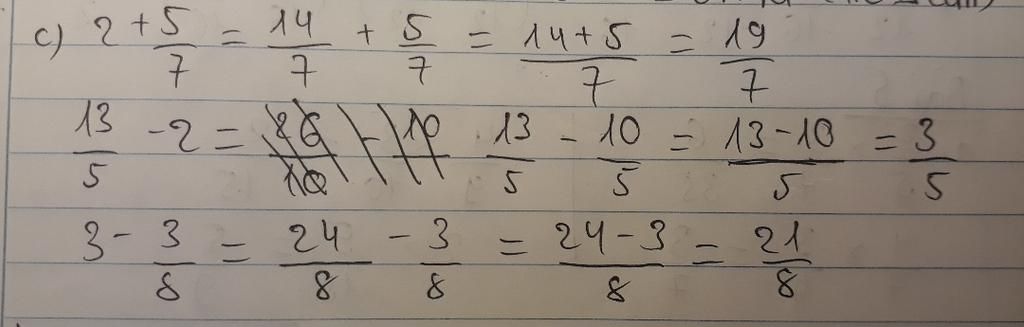 c) 2 + 5/7 = 14/7 + 5/7 = 14+5/7 = 19/7
13/5 - 2 = 13/5 - 10/5 = 13-10/5 = 3/5
3 - 3/8 = 24/8 - 3/8 = 24-3/8 = 21/8